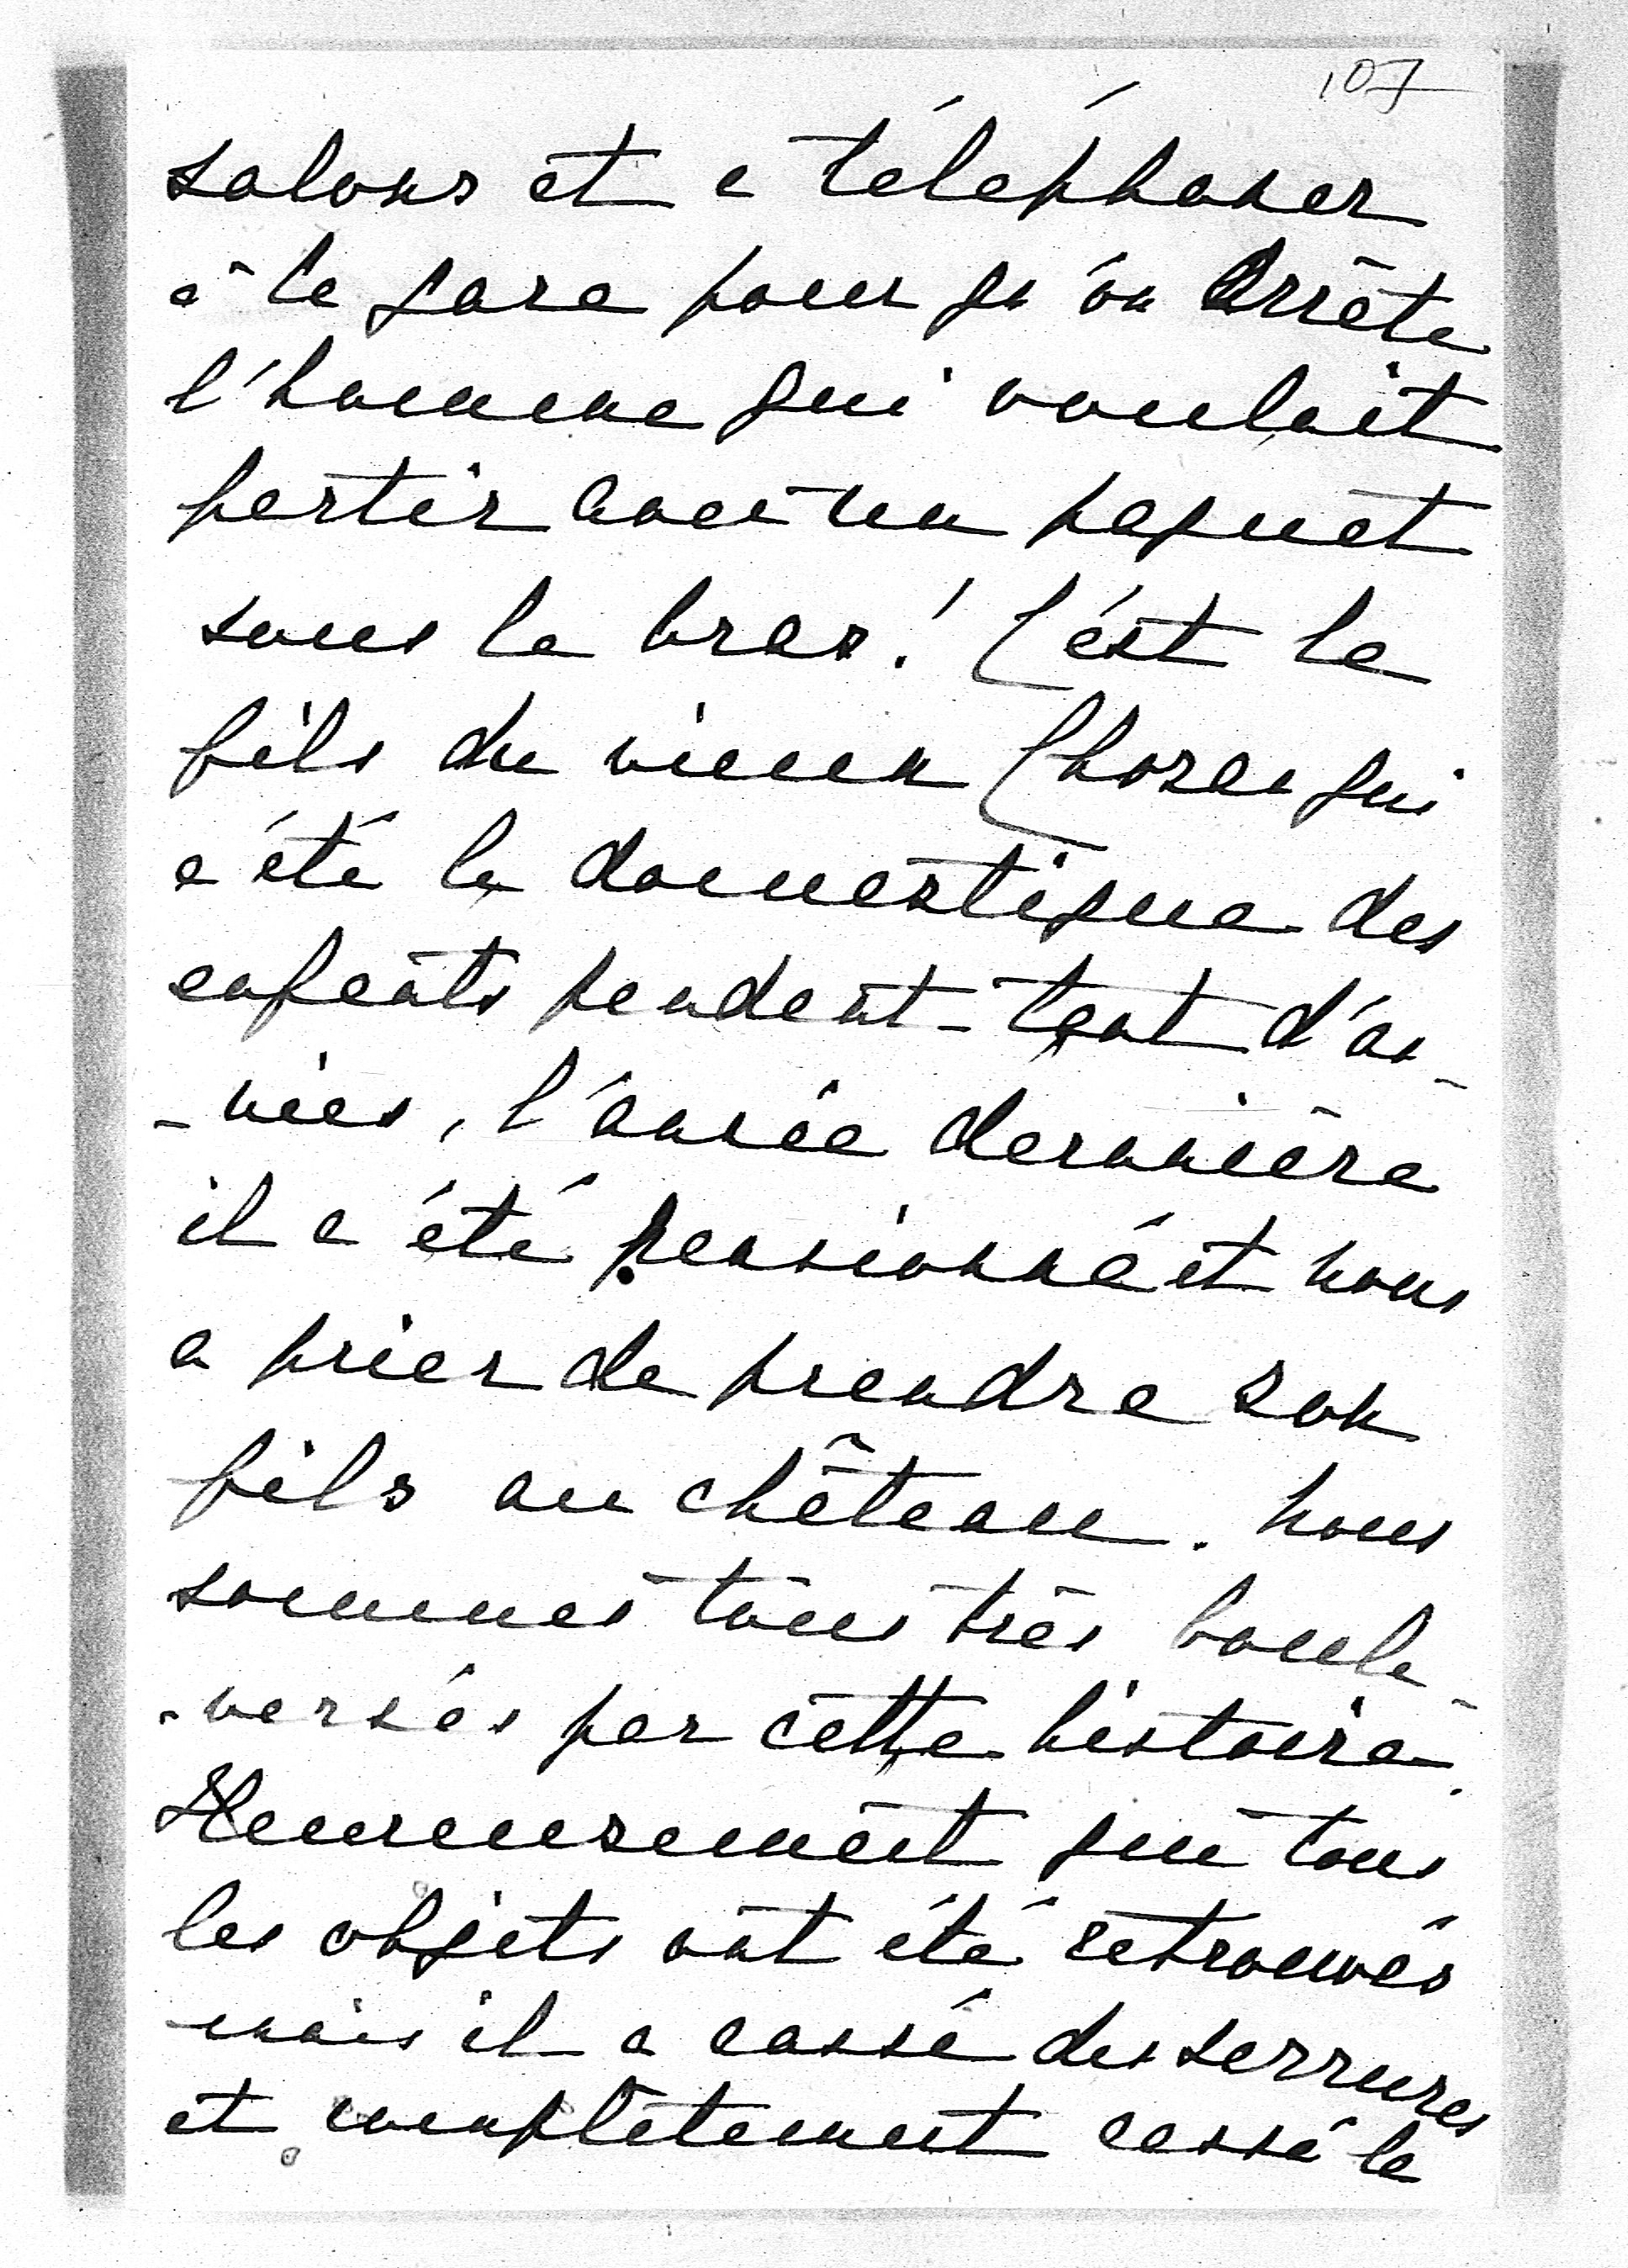 107
salons et a téléphoner
à la gare pour qu'on arrête
l'homme qui voulait
partir avec un paquet
sous le bras! C'est le
fils du vieux qui
a été le domestique des
enfants pendant tant d'an-
-nées, l'année dernière
il a été pensionné et nous
a prier de prendre son
fils au château. Nous
sommes tous très boule-
-versés par cette histoire.
Heureusement que tous
les objets ont été retrouvés
mais il a cassé des serrures
et complètement cassé le